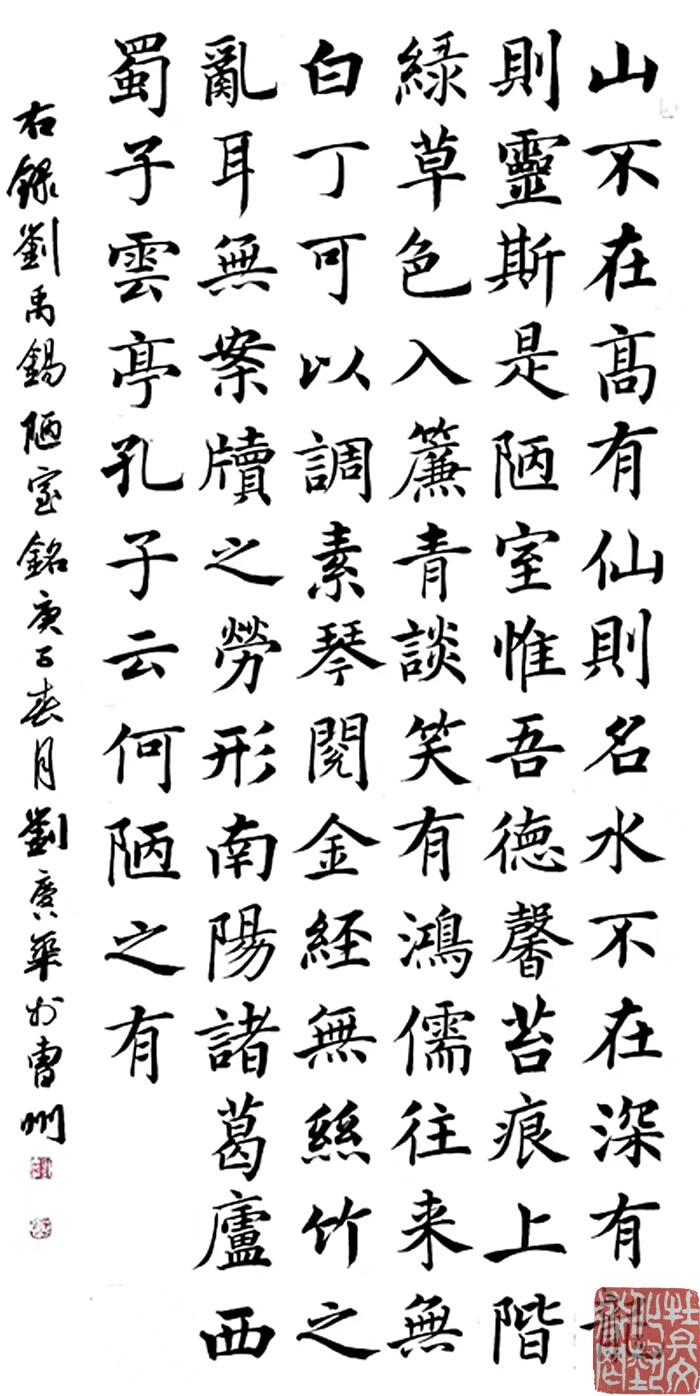 山不在髙有仙則名水不在深有
則靈斯是陋室惟吾德馨苔痕上階
緑草色入簾青談笑有鴻儒往来無
白丁可以調素琴閱金経無絲竹之
亂耳無案牘之勞形南陽諸葛廬西
蜀子雲亭孔子云何陋之有
右録劉禹錫陋室銘庚子春月劉華於曹州